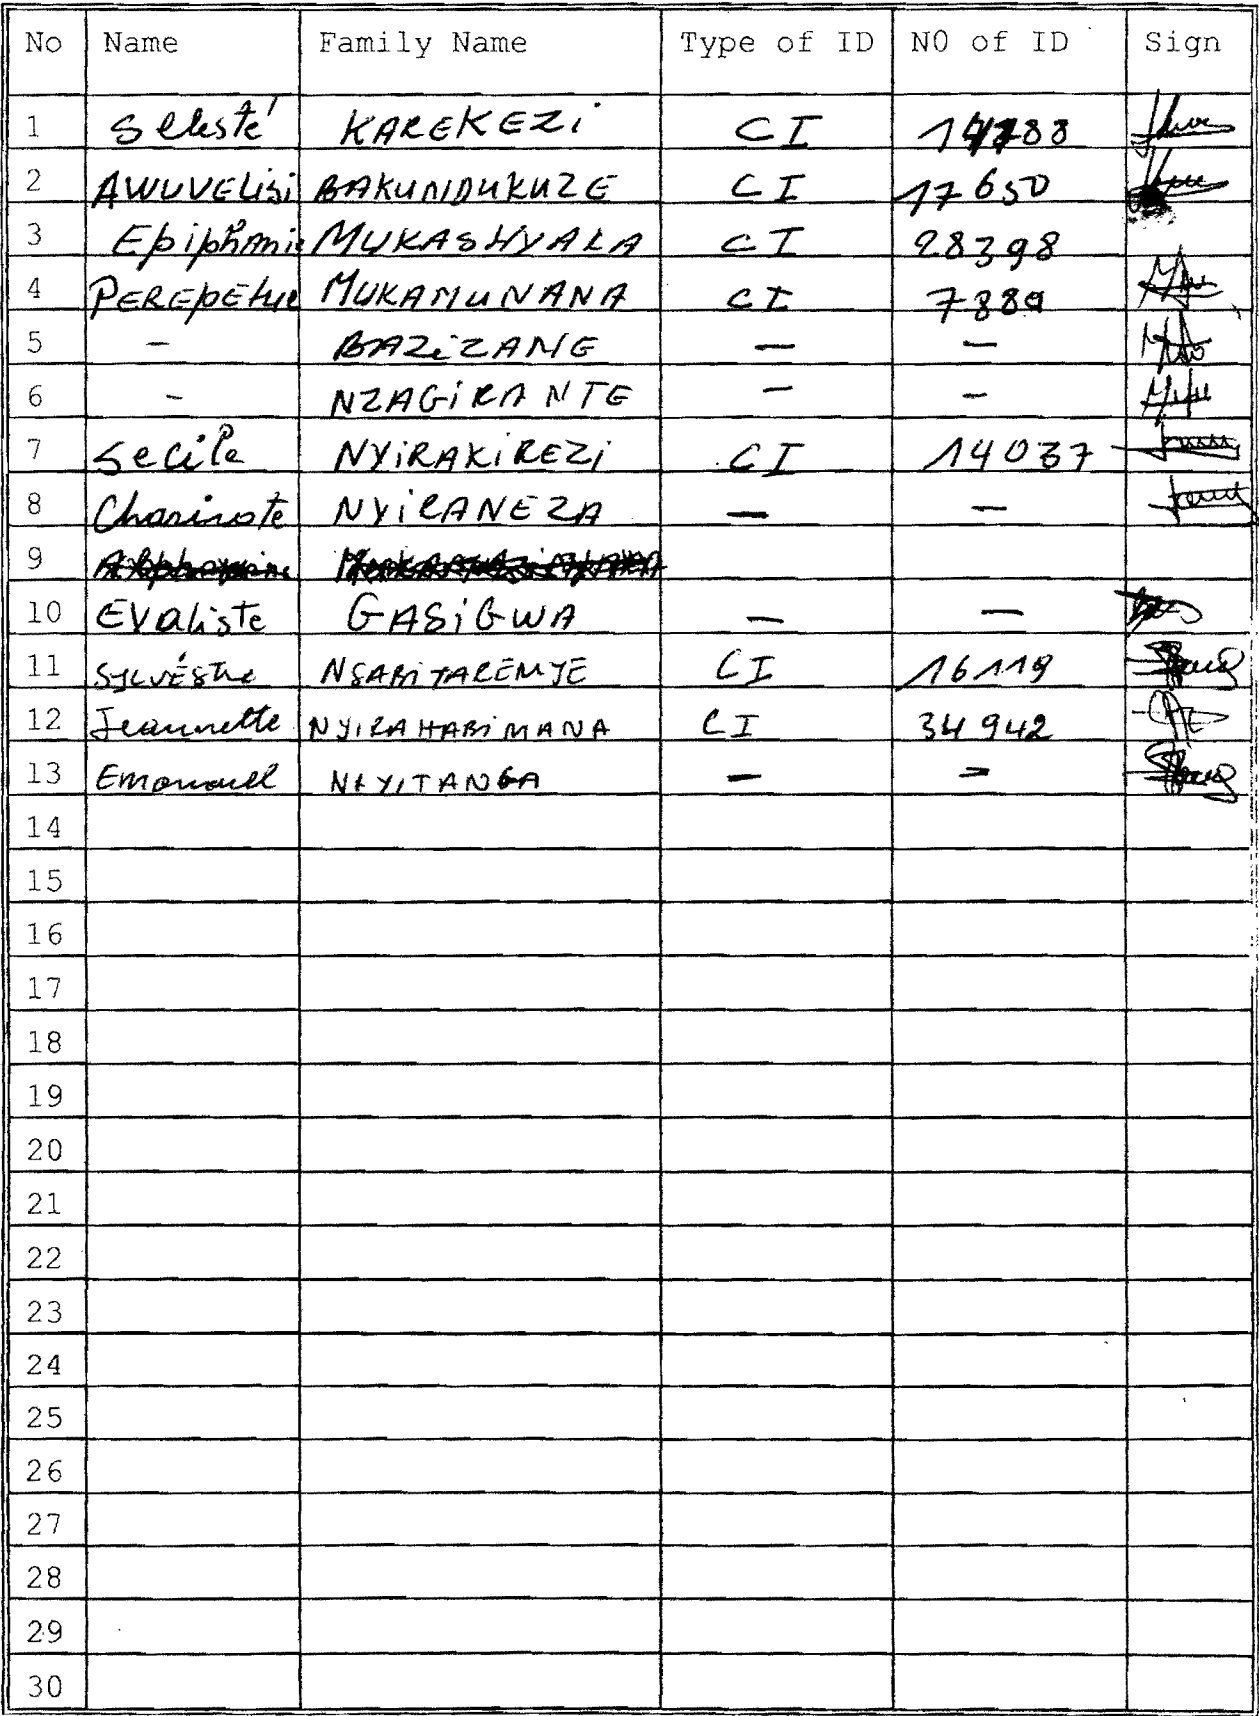 No Name Family Name Type of ID N0 of ID Sign
1 Sèlesté KAREKEZi CI
2 AWUVELisi BAKUNDUKUZE CI 17650
3 Epiphanie MUKASHYAKA CI 28398
4 PEREpETUE MUKAMUNANA CI 7889
5 - BAZiZANE - -
6 - NZAGiRANTE - -
7 Secile NYiRAKiREZi CI 14037
8 NYiRANEZA - -
9
10 EValiste GASiGWA - -
11 SYLVÉStre NSABiYAREMYE CI 16119
12 Jeannette NYiRAHABiMANA CI 34942
13 Emanuel NKYITANGA - -
14
15
16
17
18
19
20
21
22
23
24
25
26
27
28
29
30